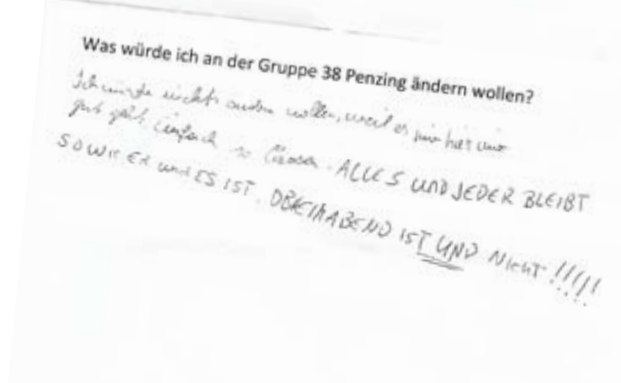 Was würde ich an der Gruppe 38 Penzing ändern wollen?
Ich würde nichts ändern wollen, weil es mir hier
gut geht. Einfach so lassen. ALLES UND JEDER BLEIBT
SO WIE ER und ES IST, IST UND NICHT !!!!!